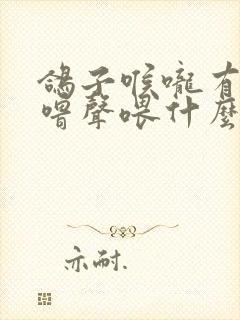 鴿子喉嚨有
嗗聲喂什麼
亦耐.